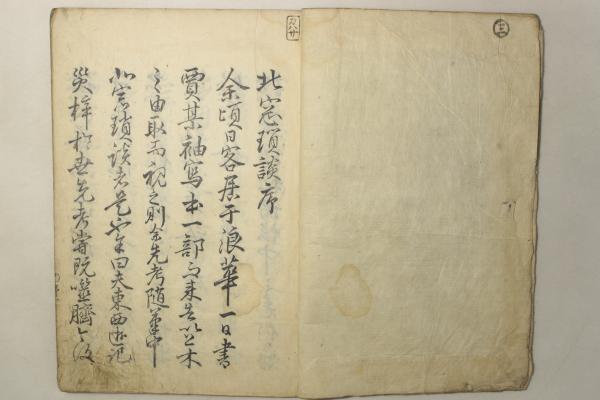 北窓瑣談序
余頃日客居于浪華一日書
賈某袖寫本一部而来告以上木
之由取而視之則余先考随筆中
北窓瑣談者是也余曰夫東西遊記
災梓於世先考嘗既噬臍